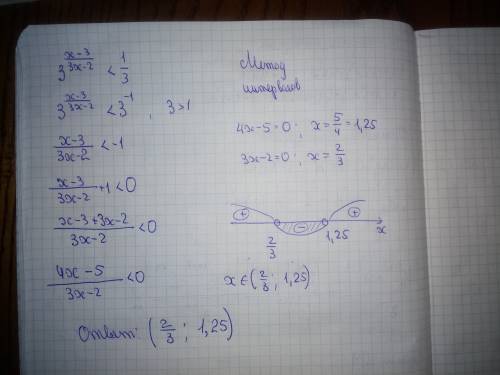 3^((x-3)/(3x-2)) < 1/3
3^((x-3)/(3x-2)) < 3^(-1) , 3>1
(x-3)/(3x-2) < -1
(x-3)/(3x-2) +1 <0
(x-3+3x-2)/(3x-2) <0
(4x-5)/(3x-2) <0
Метод
интервалов
4x-5=0; x=5/4=1,25
3x-2=0; x=2/3
+ − +
2/3 1,25 x
x∈(2/3; 1,25)
Ответ: (2/3; 1,25)